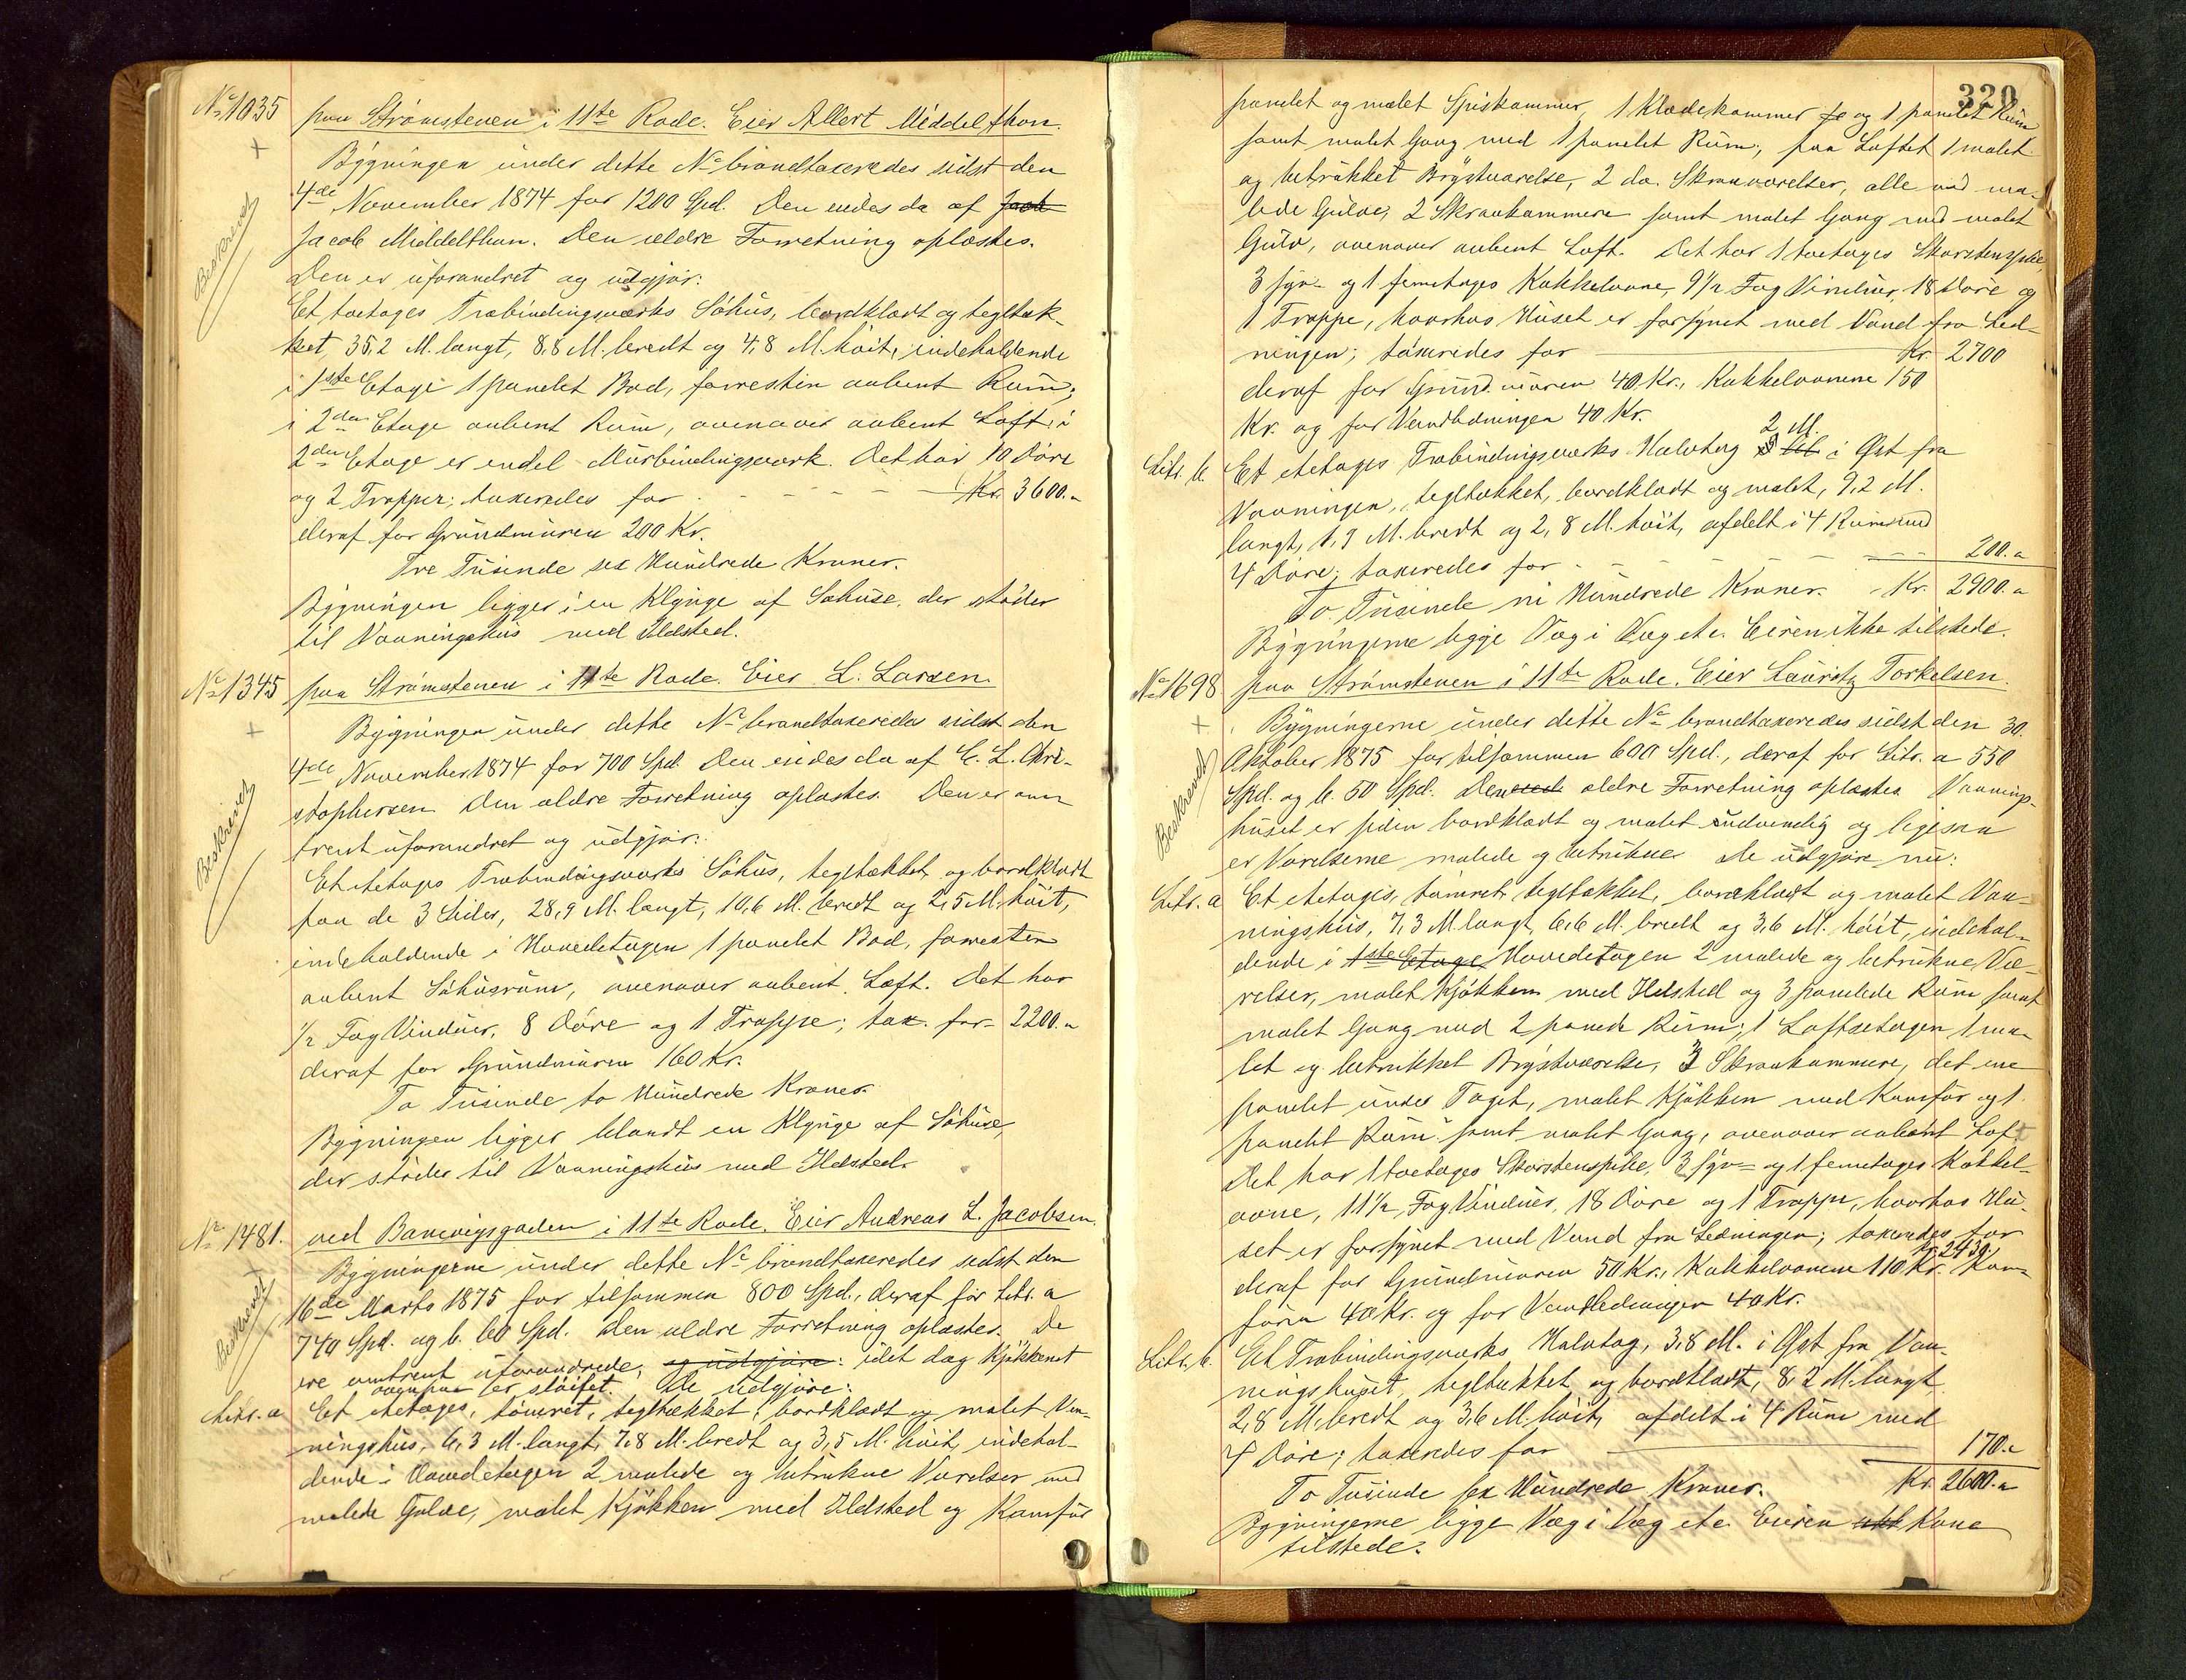 No 1035 paa Strømstenen i 11te Rode. Eier Allert Middelthon.
Bygningen under dette No brandtaxeredes sidst den
4de November 1874 for 1200 Spd. Den eiedes da af Jaob
Jacob Middelthon. Den ældre Forretning oplæstes.
Beskrevet
Den er uforandret og udgjør:
Et toetages Træbindingsværks Søhus, bordklædt og tegltæk-
ket, 35,2 M. langt, 8,8 M. bredt og 4,8 M. høit, indeholdende
i 1ste Etage 1 panelet Bod, forresten aabent Rum;
i 2den Etage aabent Rum, ovenover aabent Loft; i
2den Etage er endel Murbindingsværk. Det har 10 Døre
og 2 Trapper; taxeredes for - - - - Kr. 3600.-
deraf for Grundmuren 200 Kr.
Tre Tusinde sex Hundrede Kroner.
Bygningen ligger i en Klynge af Søhuse, der støder
til Vaaningshus med Ildsted.
No 1345 paa Strømstenen i 11te Rode. Eier L. Larsen.
Bygningen under dette No brandtaxeredes sidst den
4de November 1874 for 700 Spd. Den eiedes da af C. L. Chri-
stophersen. Den ældre Forretning oplæstes. Den er om-
Beskrevet
trent uforandret og udgjør:
Et etetages Træbindingsværks Søhus, tegltækket og bordklædt
paa de 3 Sider, 28,9 M. langt, 10,6 M. bredt og 2,5 M. høit,
indeholdende i Hovedetagen 1 panelet Bod, forresten
aabent Søhusrum, ovenover aabent Loft. Det har
1/2 Fag Vinduer, 8 Døre og 1 Trappe; tax. for - 2200.-
deraf for Grundmuren 160 Kr.
To Tusinde to Hundrede Kroner.
Bygningen ligger blandt en Klynge af Søhuse,
der støder til Vaaningshus med Ildsted.
No 1481. ved Banevigsgaden i 11te Rode. Eier Andreas L. Jacobsen.
Bygningerne under dette No brandtaxeredes sidst den
16de Marts 1875 for tilsammen 800 Spd., deraf for Litr. a
740 Spd. og b. 60 Spd. Den ældre Forretning oplæstes. De
Beskrevet
ere omtrent uforandrede, og udgjøre: idet dog Kjøkkenet
ovenpaa er sløifet. De udgjøre:
Litr. a Et etetages, tømret, tegltækket, bordklædt og malet Vaa-
ningshus, 6,3 M. langt, 7,8 M. bredt og 3,5 M. høit, indehol-
dende i Hovedetagen 2 malede og betrukne Værelser med
malede Gulve, malet Kjøkken med Ildsted og Komfur
320
panelet og malet Spiskammer, 1 Klædekammer og 1 panelet Rum
samt malet Gang med 1 panelet Rum; paa Loftet 1 malet
og betrukket Brystværelse, 2 do. Skraaværelser, alle med ma-
lede Gulve, 2 Skraakammere samt malet Gang med malet
Gulv, ovenover aabent Loft. Det har 1 toetages Skorstenspibe,
3 fyr- og 1 femetages Kakkelovne, 9 1/2 Fag Vinduer, 18 Døre og
1 Trappe, hvorhos Huset er forsynet med Vand fra Led-
ningen; taxeredes for Kr. 2700
deraf for Grundmuren 40 Kr., Kakkelovnene 150
Kr. og for Vandledningen 40 Kr.
2 M.
Litr. b. Et etetages Træbindingsværks Halvtag i Øst fra
Vaaningen, tegltækket, bordklædt og malet, 9,2 M.
langt, 1,9 M. bredt og 2,8 M. høit, afdelt i 4 Rum med
4 Døre; taxeredes for - - - - 200.-
To Tusinde ni Hundrede Kroner. - Kr. 2900.-
Bygningerne ligge Væg i Væg etc. Eieren ikke tilstede.
No 1698 paa Strømstenen i 11te Rode. Eier Lauritz Torkelsen.
Bygningerne under dette No brandtaxeredes sidst den 30.
Oktober 1875 for tilsammen 600 Spd., deraf for Litr. a 550
Spd. og b. 50 Spd. Den ældre Forretning oplæstes. Vaanings-
Beskrevet
huset er siden bordklædt og malet udvendig og ligesaa
er Værelserne malede og betrukne. De udgjøre nu:
Litr. a Et etetages, tømret, tegltækket, bordklædt og malet Vaa-
ningshus, 7,3 M. langt, 6,6 M. bredt og 3,6 M. høit, indehol-
dende i 1ste Etage Hovedetagen 2 malede og betrukne Væ-
relser, malet Kjøkken med Ildsted og 3 panelede Rum samt
malet Gang med 2 panede Rum; i Loftsetagen 1 ma-
let og betrukket Brystværelse, 3 Skraakammere, det ene
panelet under Taget, malet Kjøkken med Komfur og 1
panelet Rum samt malet Gang, ovenover aabent Loft.
Det har 1 toetages Skorstenspibe, 3 fyr- og 1 femetages Kakkel-
ovne, 11 1/2 Fag Vinduer, 18 Døre og 1 Trappe, hvorhos Hu-
set er forsynet med Vand fra Ledningen; taxeredes for
Kr. 2430.-
deraf for Grundmuren 50 Kr., Kakkelovnene 110 Kr. Kom-
furen 40 Kr. og for Vandledningen 40 Kr.
Litr. b. Et Træbindingsværks Halvtag, 3,8 M. i Øst fra Vaa-
ningshuset, tegltækket og bordklædt, 8,2 M. langt,
2,8 M. bredt og 3,6 M. høit, afdelt i 4 Rum med
4 Døre; taxeredes for 170.-
To Tusinde sex Hundrede Kroner. Kr. 2600.-
Bygningerne ligge Væg i Væg etc. Eieren ikke Kone
tilstede.